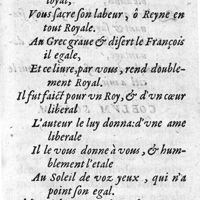 loyal,
Vous sacre son labeur, ô Reyne en
tout Royale.
Au Grec graue & disert le François
il egale,
Et ce liure, par vous, rend double-
ment Royal.
Il fut faict pour un Roy, & d'vn cœur
liberal
L'auteur le luy donna: d'vne ame
liberale
Il le vous donne à vous, & hum-
blement l'etale
Au Soleil de voz yeux, qui n'a
point son egal.